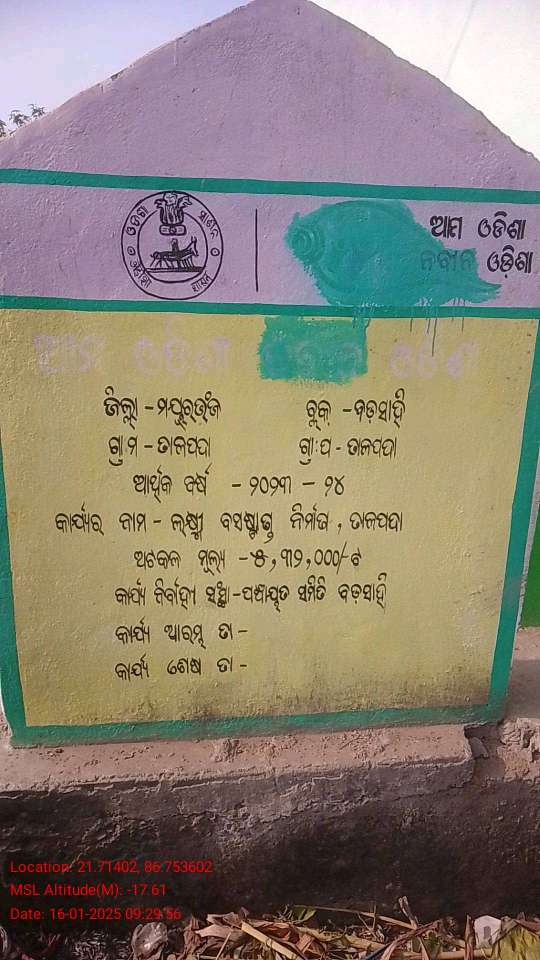 ଓଡ଼ିଶା ଶାସନ
ଆମ ଓଡିଶା
ନବୀନ ଓଡ଼ିଶା
ଆମ ଓଡ଼ିଶା ଓଡିଶା
ଜିଲ୍ଲା - ମୟୂରଭଞ୍ଜ ବ୍ଲକ୍ - ବଡ଼ସାହି
ଗ୍ରାମ - ତାଳପଦା ଗ୍ରା:ପ - ତାଳପଦା
ଆର୍ଥିକ ବର୍ଷ - ୨୦୨୩ - ୨୪
କାର୍ଯ୍ୟର ନାମ - ଲକ୍ଷ୍ମୀ ବସଷ୍ଟାଣ୍ଡ ନିର୍ମାଣ, ତାଳପଦା
ଅଟକଳ ମୂଲ୍ୟ - ୫,୩୨,୦୦୦/-ଟ
କାର୍ଯ୍ୟ ନିର୍ବାହୀ ସଂସ୍ଥା - ପଞ୍ଚାୟତ ସମିତି ବଡ଼ସାହି
କାର୍ଯ୍ୟ ଆରମ୍ଭ ତା -
କାର୍ଯ୍ୟ ଶେଷ ତା -
Location: 21.71402, 86.753602
MSL Altitude(M): -17.61
Date: 16-01-2025 09:29:56